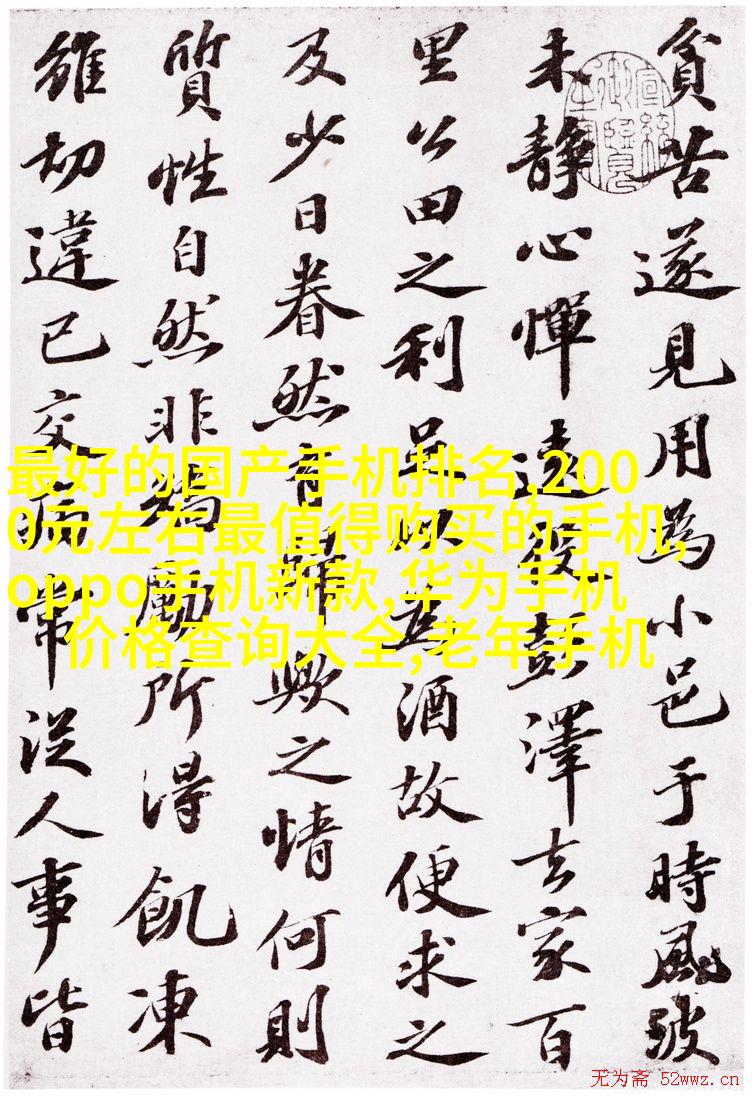 貧苦遂見用為小邑于時風波
未靜心憚遠役彭澤去家百
里公田之利足以為酒故便求之
及少日眷然有歸歟之情何則
質性自然非矯勵所得飢凍
雖切違己交病常從人事皆
最好的国产手机排名,200
0元左右最值得购买的手机,
oppo手机新款,华为手机
价格查询大全,老年手机
无为斋 52wwz.cn